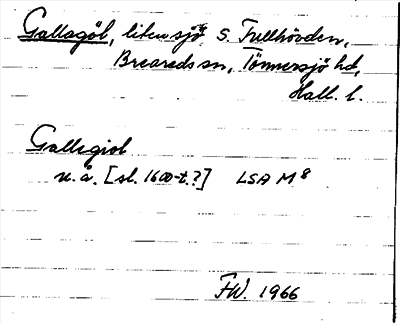 Gallagöl, liten sjö S. Fullhövden,
Breareds sn, Tönnersjö hd,
Hall. l.
Gallegiol
u.å. [sl. 1600-t.?] LSA M 8
FW. 1966